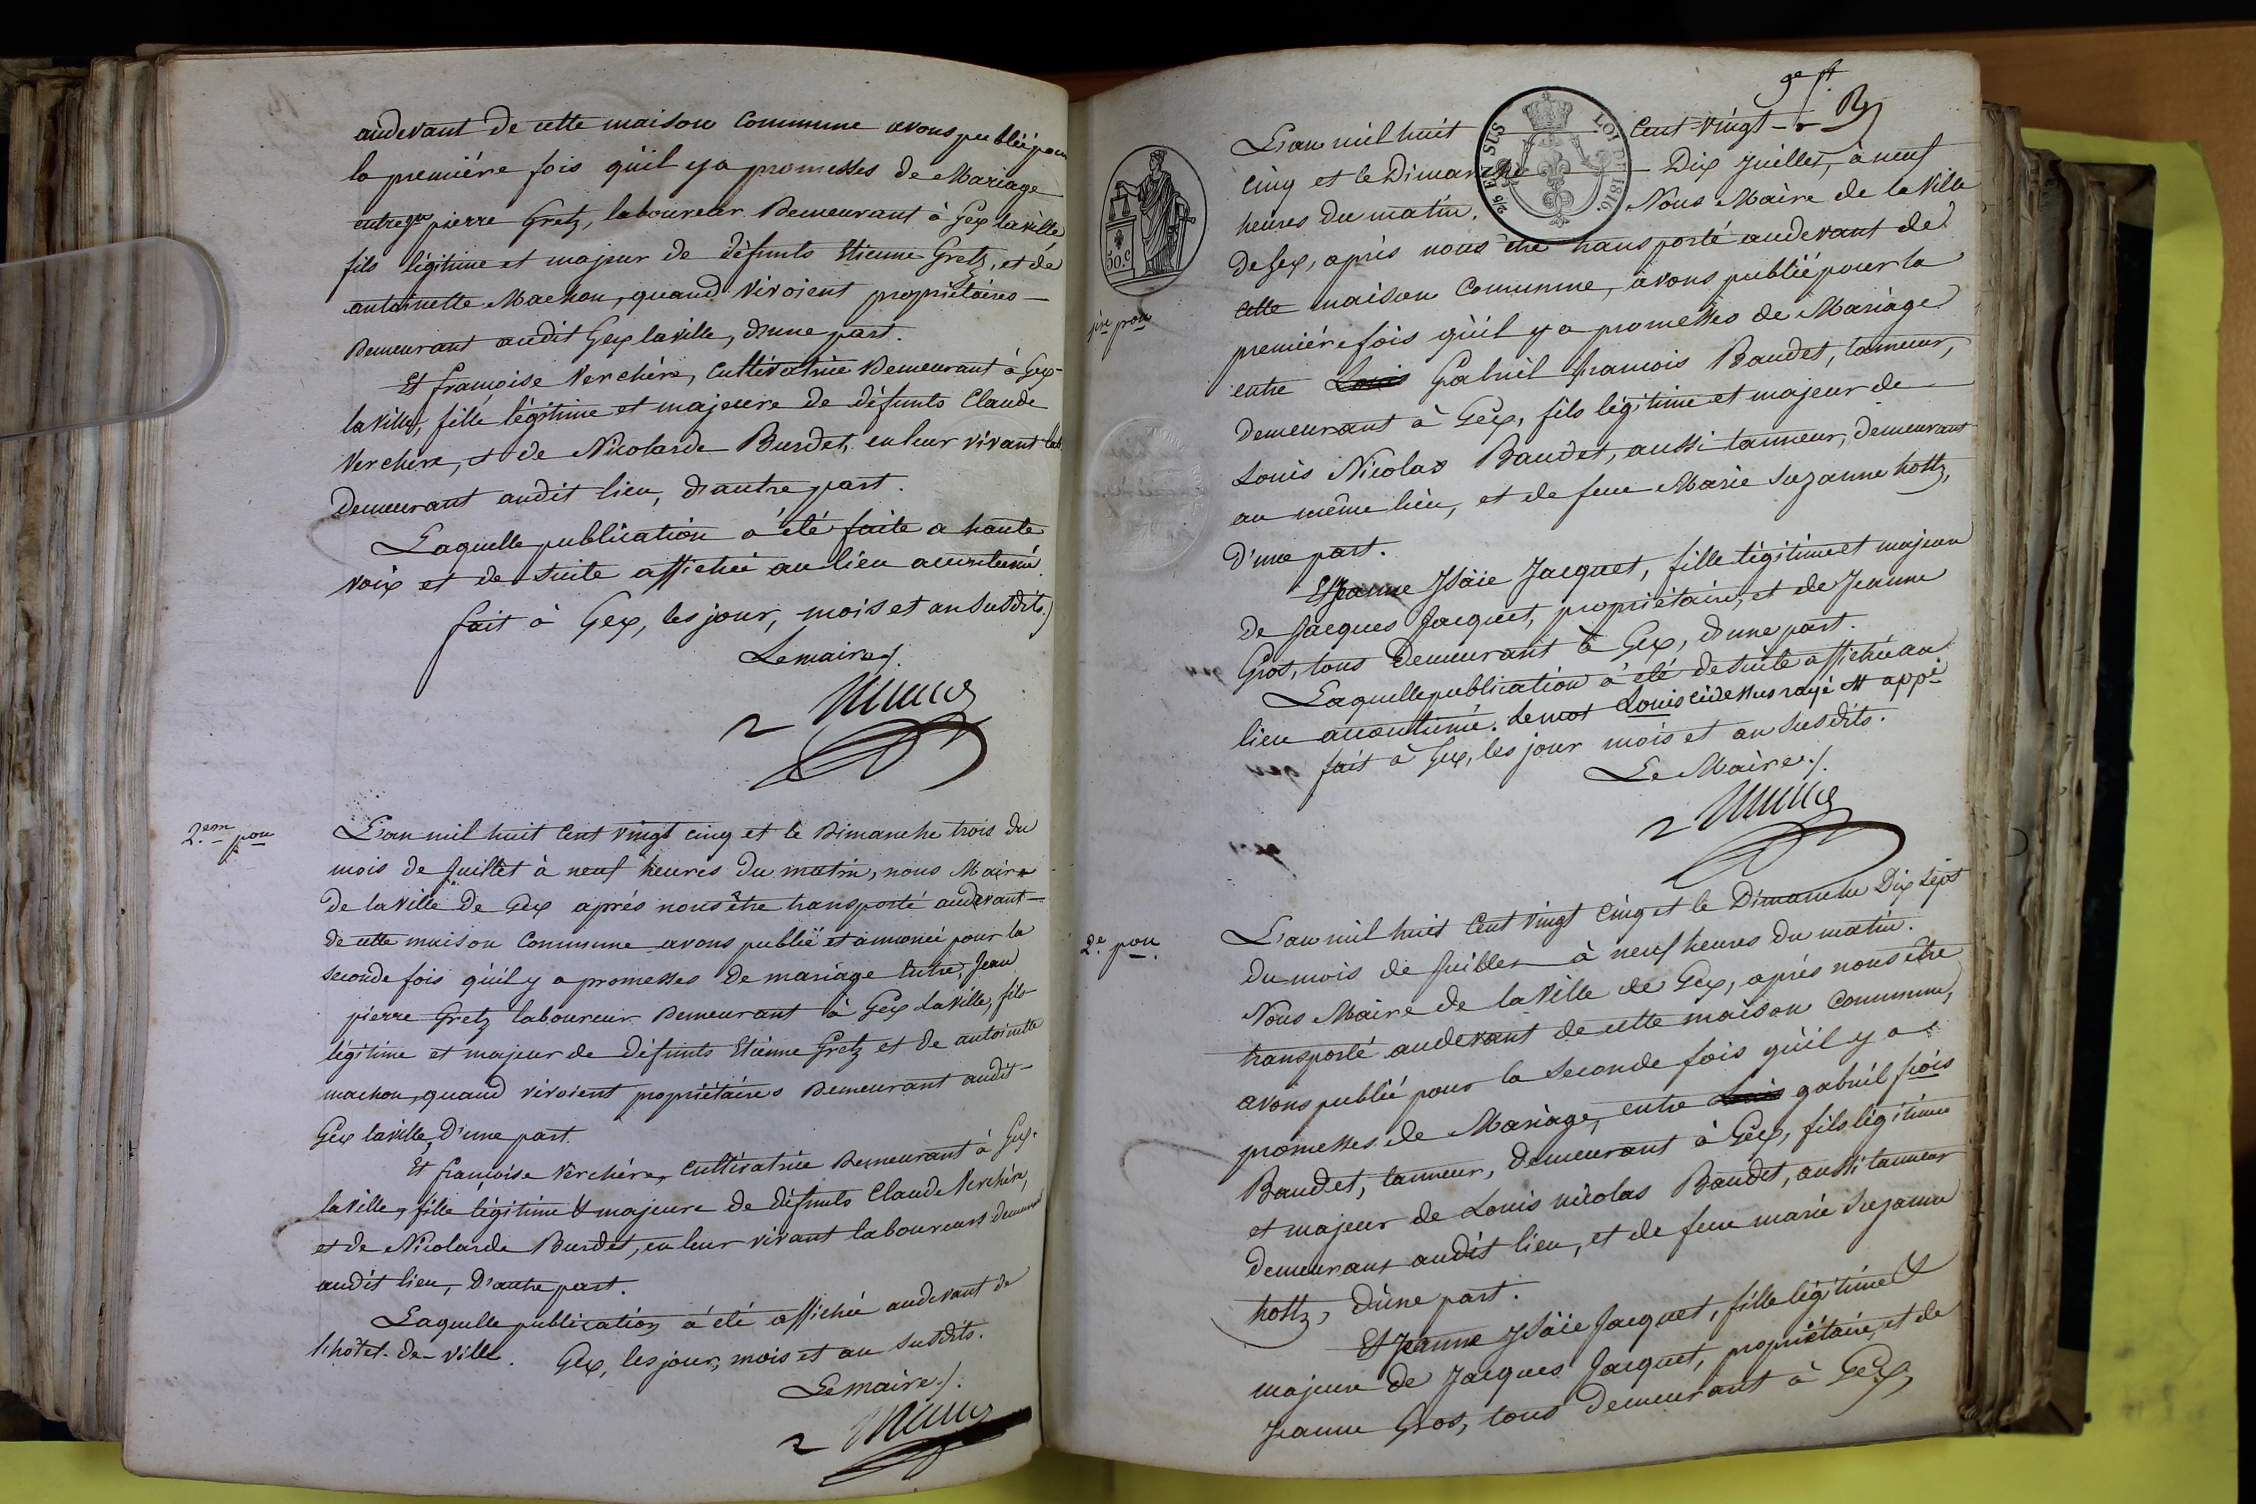 audevant de cette maison Commune avons publié pour
la première fois qu'il y a promesses de Mariage
entre Jean pierre Gretz, laboureur Demeurant à Gex la ville
fils légitime et majeur de défunts Etienne Gretz, et de
antoinette Machon, quand vivoient propriétaires
Demeurant audit Gex la ville, d'une part.
Et françoise Verchére, Cultivatrice Demeurant à Gex-
la ville, fille légitime et majeure de défunts Claude
Verchére, et de Nicolarde Burdet, en leur vivant lab
Demeurant audit lieu, d'autre part.
Laquelle publication a été faite a haute
voix et de suite affichée au lieu accoutumé.
fait à Gex, les jour, mois et an susdits
Le maire
2.em pon
L'an mil huit Cent vingt cinq et le Dimanche trois du
mois de Juillet à neuf heures du matin, nous Maire
de la ville de Gex après nous être transporté audevant
de cette maison Commune avons publié et annoncé pour la
seconde fois qu'il y a promesses de mariage Entre, Jean
pierre Gretz laboureur Demeurant à Gex la ville, fils
légitime et majeur de défunts Etienne Gretz et de antoinette
machon, quand vivoient propriétaires Demeurant audit
Gex la ville, D'une part.
Et françoise Verchére, Cultivatrice Demeurant à Gex-
la ville, fille légitime & majeure de défunts Claude Verchére,
et de Nicolarde Burdet, en leur vivant laboureurs demeurant
audit lieu, D'autre part.
Laquelle publication a été affichée audevant de
l'hôtel-de-ville. Gex, les jour, mois et an susdits.
Le maire
9e ft
50.c
2/5 EN SUS
LOI DE 1816.
1ère pon
L'an mil huit Cent vingt
cinq et le Dimanche Dix Juillet, à neuf
heures du matin. Nous Maire de la Ville
de Gex, après nous être transporté audevant de
cette maison Commune, avons publié pour la
première fois qu'il y a promesses de Mariage
entre Louis Gabriel francois Baudet, tanneur,
demeurant à Gex, fils légitime et majeur de
Louis Nicolas Baudet, aussi tanneur, demeurant
au même lieu, et de feue Marie Suzanne hottz,
D'une part.
Et Jeanne Isaïe Jacquet, fille légitime et majeure
de Jacques Jacquet, propriétaire, et de Jeanne
Gros, tous Demeurant à Gex, d'une part.
Laquelle publication a été de suite affichée au
lieu accoutumé. Le mot Louis cidessus rayé est appé
fait à Gex, les jour mois et an susdits.
Le Maire
2.e pon.
L'an mil huit Cent vingt Cinq et le Dimanche Dix Sept
du mois de Juillet à neuf heures du matin.
Nous Maire de la Ville de Gex, après nous être
transporté audevant de cette maison Commune,
avons publié pour la Seconde fois qu'il y a
promesses de Mariage, entre Louis gabriel fçois
Baudet, tanneur, demeurant à Gex, fils légitime
et majeur de Louis nicolas Baudet, aussi tanneur
demeurant audit lieu, et de feue marie Suzanne
hottz, d'une part.
Et Jeanne Isaïe Jacquet, fille légitime &
majeure de Jacques Jacquet, propriétaire, et de
Jeanne Gros, tous Demeurant à Gex,